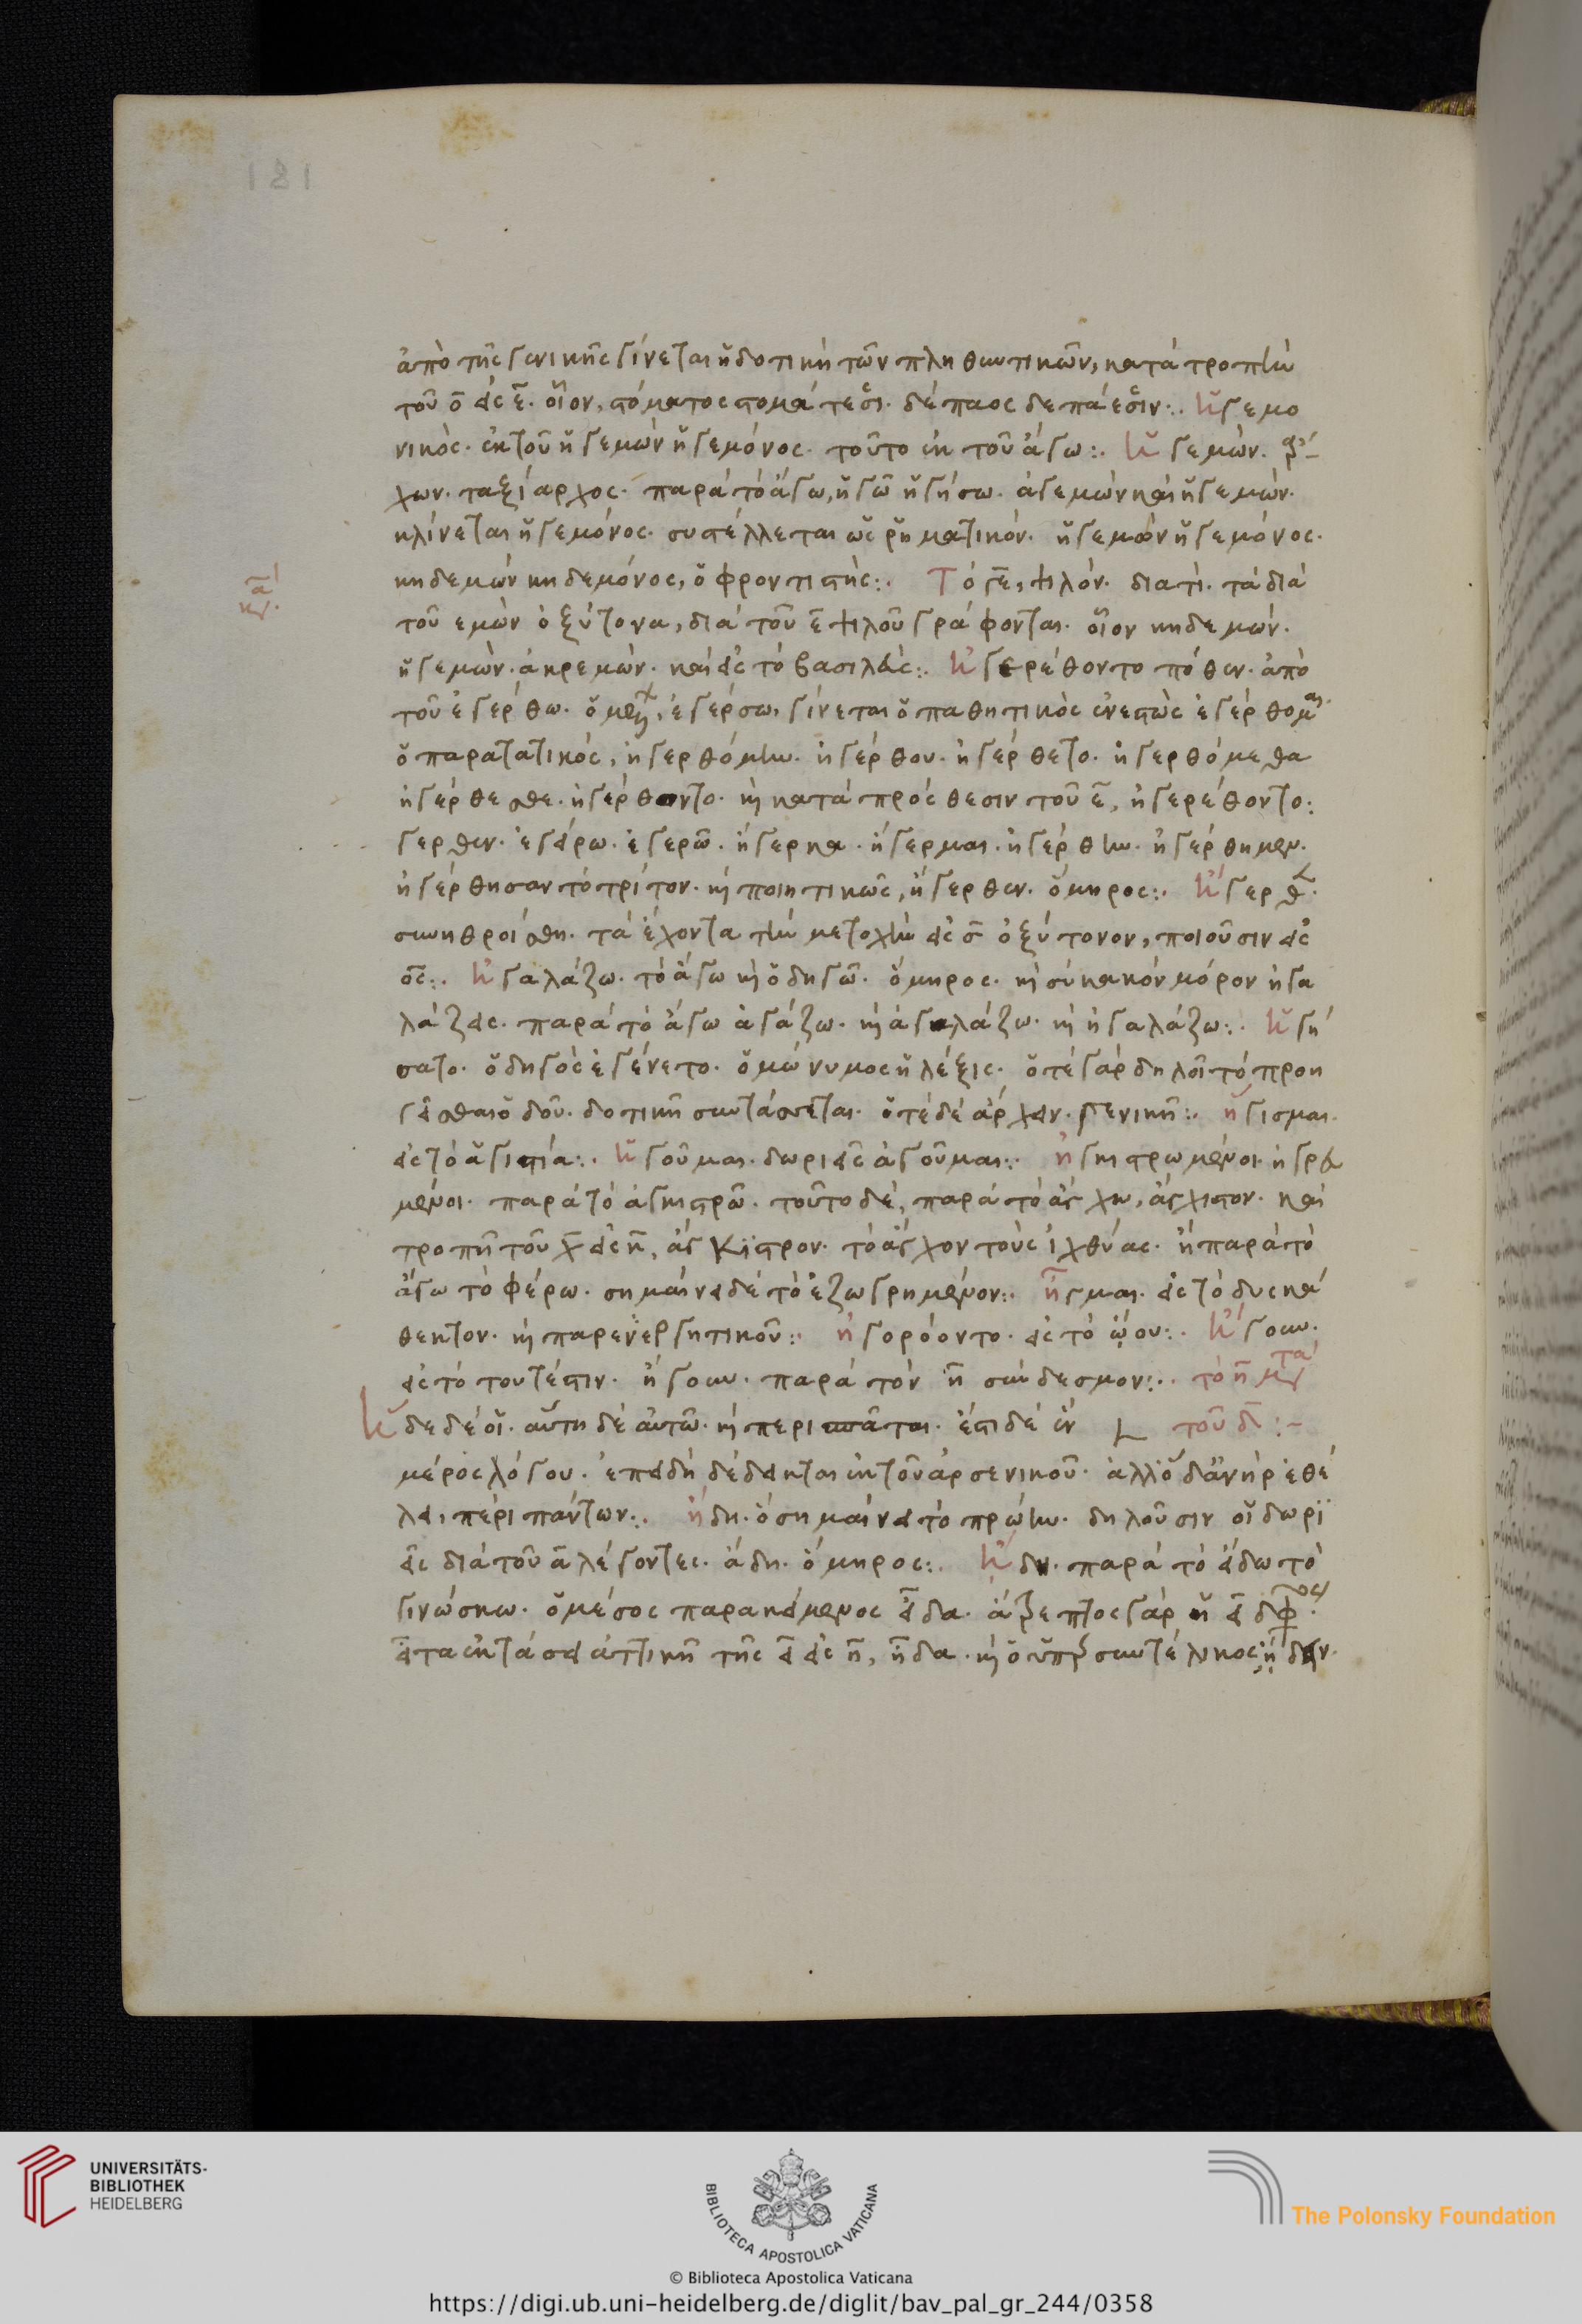 181
ἀπὸ τῆς γενικῆς γίνεται ἡ δοτικὴ τῶν πληθυντικῶν, κατὰ τροπὴν
τοῦ ο̄ εἰς ε̄. οἷον, στόματος στομάτεσσι. δέπαος δεπάεσσιν:. Ἡγεμο
νικός. ἐκ τοῦ ἡγεμὼν ἡγεμόνος. τοῦτο ἐκ τοῦ ἄγω:. Ἡγεμών. ἄρ
χων. ταξίαρχος. παρὰ τὸ ἄγω, ἡγῶ ἡγήσω. ἀγεμὼν καὶ ἡγεμών.
κλίνεται ἡγεμόνος. συστέλλεται ὡς ῥηματικόν. ἡγεμὼν ἡγεμόνος.
κηδεμὼν κηδεμόνος, ὁ φροντιστής:. Τὸ γε̄, ψιλόν. διατί. τὰ διὰ
τοῦ εμὼν ὀξύτονα, διὰ τοῦ ε̄ ψιλοῦ γράφονται. οἷον κηδεμών.
ἡγεμών. ἀκρεμών. καὶ εἰς τὸ βασιλεύς:. Ἠγερέθοντο πόθεν. ἀπὸ
τοῦ ἐγέρθω. ὁ μέλλων, ἐγέρσω, γίνεται ὁ παθητικὸς ἐνεστὼς ἐγέρθομαι
ὁ παρατατικός, ἠγερθόμην. ἠγέρθου. ἠγέρθετο. ἠγερθόμεθα
ἠγέρθεσθε. ἠγέρθοντο. καὶ κατὰ πρόσθεσιν τοῦ ε̄, ἠγερέθοντο:
γερθεν. ἐγείρω. ἐγερῶ. ἤγερκα. ἤγερμαι. ἠγέρθην. ἠγέρθημεν.
ἠγέρθησαν τὸ τρίτον. καὶ ποιητικῶς, ἤγερθεν. ὅμηρος:. Ἤγερθεν.
συνηθροίσθη. τὰ ἔχοντα τὴν μετοχὴν εἰς σ̄ ὀξύτονον, ποιοῦσιν εἰς
ος:. Ἠγαλάζω. τὸ ἄγω καὶ ὁδηγῶ. ὅμηρος. καὶ σὺ κακὸν μόρον ἠγα
λάζεις. παρὰ τὸ ἄγω ἀγάζω. καὶ ἀγαλάζω. καὶ ἠγαλάζω:. Ἡγή
σατο. ὁδηγὸς ἐγένετο. ὁμώνυμος ἡ λέξις. ὅτε γὰρ δηλοῖ τὸ προη
γεῖσθαι ὁδοῦ. δοτικῇ συντάσσεται. ὅτε δὲ ἄρχειν. γενικῇ:. ἥγισμαι.
εἰς τὸ ἁγιστία:. Ἡγοῦμαι. δωριεῖς ἁγοῦμαι:. ἠγκιστρωμένοι. ἠγρευ
μένοι. παρὰ τὸ ἀγκιστρῶ. τοῦτο δέ, παρὰ τὸ ἄγχω, ἄγχιστον. καὶ
τροπῇ τοῦ χ̄ εἰς κ̄, ἄγκιστρον. τὸ ἄγχον τοὺς ἰχθύας. ἢ παρὰ τὸ
ἄγω τὸ φέρω. σημαίνει δὲ τὸ ἐζωγρημένον:. ἧγμαι. εἰς τὸ δυσκά
θεκτον. καὶ παρενεργητικοῦ:. ἠγορόοντο. εἰς τὸ ᾤου:. Ἤγουν.
εἰς τὸ τουτέστιν. ἤγουν. παρὰ τὸν ἢ σύνδεσμον:. τὸ η̄ μετὰ
Ἡδε δέ οἱ. αὕτη δὲ αὐτῷ. καὶ περισπᾶται. ἔστι δὲ ἓν τοῦ δ̄:-
μέρος λόγου. ἐπειδὴ δέδεικται ἐκ τοῦ ἀρσενικοῦ. ἀλλ' ὅδ' ἀνὴρ ἐθέ
λει, πέρι πάντων:. ἤδη. ὃ σημαίνει τὸ πρώην. δηλοῦσιν οἱ δωρι
εῖς διὰ τοῦ ᾱ λέγοντες. ἄδη. ὅμηρος:. Ἤδη. παρὰ τὸ εἴδω τὸ
γινώσκω. ὁ μέσος παρακείμενος εἶδα. ἄτρεπτος γὰρ ἡ ει δίφθογγος.
εἶτα ἐκτάσει ἀττικῇ τῆς ει εἰς η̄, ἦδα. καὶ ὁ ὑπερσυντέλικος, ᾔδειν.
UNIVERSITÄTS-
BIBLIOTHEK
HEIDELBERG
BIBLIOTECA APOSTOLICA VATICANA
The Polonsky Foundation
© Biblioteca Apostolica Vaticana
https://digi.ub.uni-heidelberg.de/diglit/bav_pal_gr_244/0358